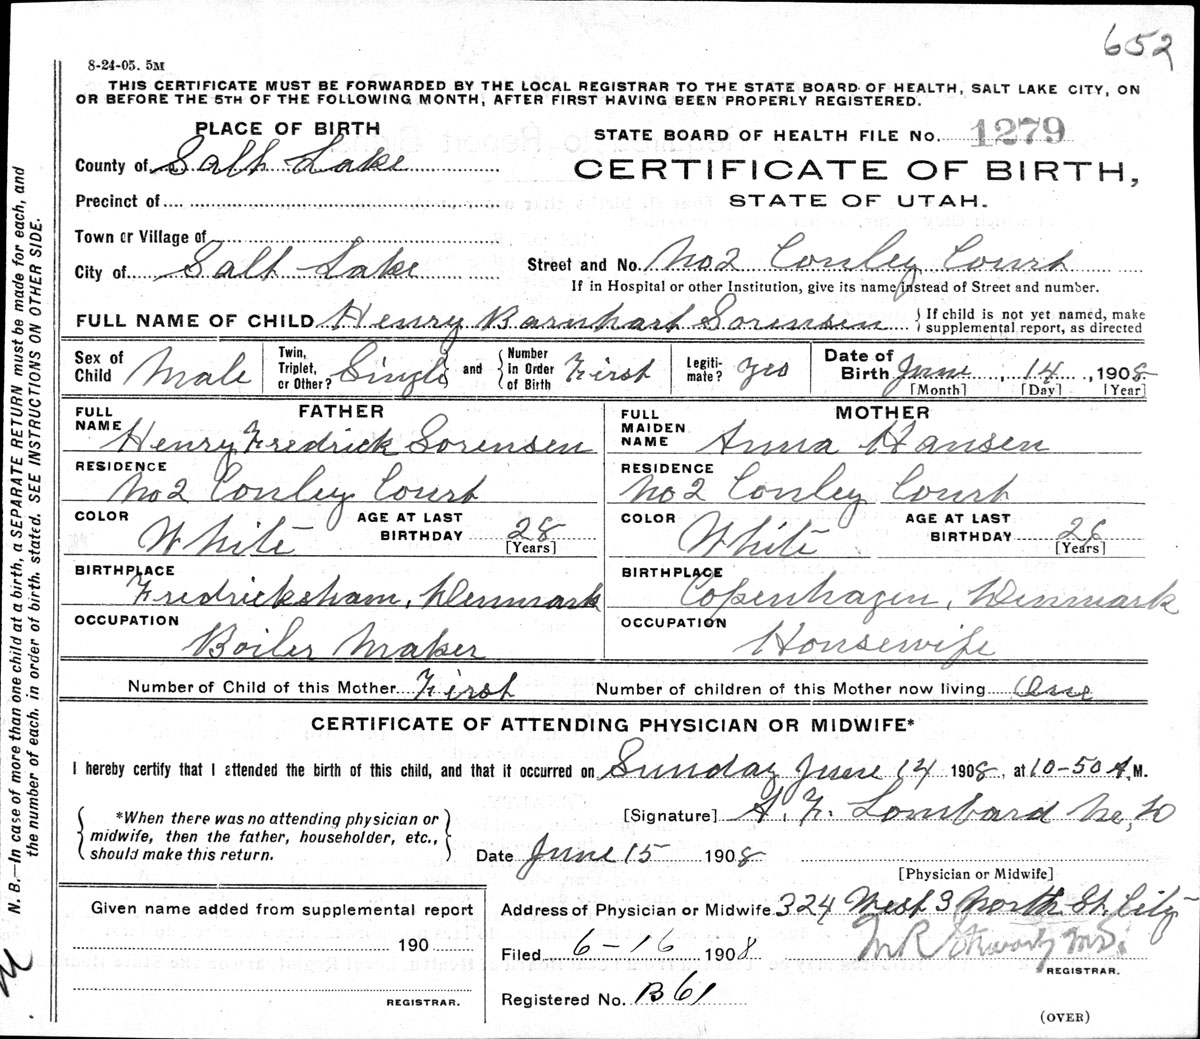 652
8-24-05. 5M
THIS CERTIFICATE MUST BE FORWARDED BY THE LOCAL REGISTRAR TO THE STATE BOARD OF HEALTH, SALT LAKE CITY, ON
OR BEFORE THE 5TH OF THE FOLLOWING MONTH, AFTER FIRST HAVING BEEN PROPERLY REGISTERED.
PLACE OF BIRTH
STATE BOARD OF HEALTH FILE No. 1279
County of Salt Lake
CERTIFICATE OF BIRTH,
Precinct of
STATE OF UTAH.
Town or Village of
City of Salt Lake
Street and No. No 2 Conley Court
If in Hospital or other Institution, give its name instead of Street and number.
FULL NAME OF CHILD Henry Barnhart Sorensen
If child is not yet named, make
supplemental report, as directed
Sex of Child Male
Twin, Triplet, or Other? Single and
Number in Order of Birth First
Legitimate? Yes
Date of Birth June, 14, 1908
[Month] [Day] [Year]
FATHER
FULL NAME Henry Fredrick Sorensen
RESIDENCE
No 2 Conley Court
COLOR White
AGE AT LAST BIRTHDAY 28
[Years]
BIRTHPLACE
Fredricksham, Denmark
OCCUPATION
Boiler Maker
MOTHER
FULL MAIDEN NAME Anna Hansen
RESIDENCE
No 2 Conley Court
COLOR White
AGE AT LAST BIRTHDAY 26
[Years]
BIRTHPLACE
Copenhagen, Denmark
OCCUPATION
Housewife
Number of Child of this Mother First
Number of children of this Mother now living One
CERTIFICATE OF ATTENDING PHYSICIAN OR MIDWIFE*
I hereby certify that I attended the birth of this child, and that it occurred on Sunday June 14 1908, at 10-50 A.M.
*When there was no attending physician or
midwife, then the father, householder, etc.,
should make this return.
[Signature] A. F. Lombard M.D
Date June 15 1908
[Physician or Midwife]
Address of Physician or Midwife 324 West 3 North St. City
Given name added from supplemental report
190
REGISTRAR.
Filed 6-16 1908
M R Stewart M.D.
REGISTRAR.
Registered No. B 61
(OVER)
N. B.—In case of more than one child at a birth, a SEPARATE RETURN must be made for each, and
the number of each, in order of birth, stated. SEE INSTRUCTIONS ON OTHER SIDE.